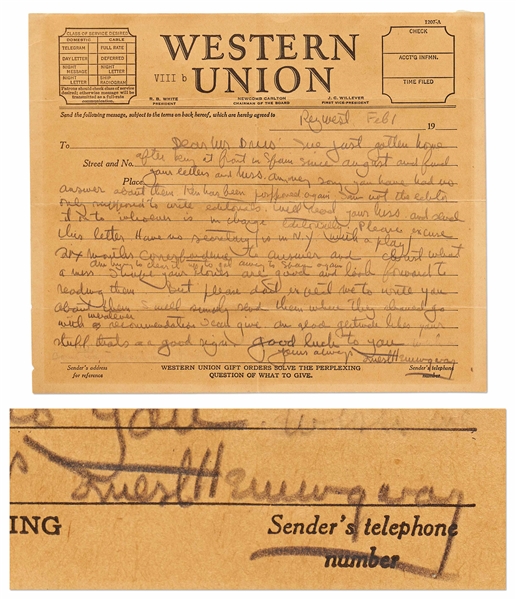 1207-A
CLASS OF SERVICE DESIRED
DOMESTIC CABLE
TELEGRAM FULL RATE
DAY LETTER DEFERRED
NIGHT MESSAGE NIGHT LETTER
NIGHT LETTER SHIP RADIOGRAM
Patrons should check class of service desired; otherwise message will be transmitted as a full-rate communication.
WESTERN
UNION
VIII b
R. B. WHITE PRESIDENT
NEWCOMB CARLTON CHAIRMAN OF THE BOARD
J. C. WILLEVER FIRST VICE-PRESIDENT
CHECK
ACCT'G INFMN.
TIME FILED
Send the following message, subject to the terms on back hereof, which are hereby agreed to
Key West Feb 1
19
To Dear Mr I've just gotten home
Street and No. after being at front in Spain since august and found
Place your letters and mss. sorry you have had no
answer about them has been postponed again I am not the editor
only supposed to write editorials. Will read your mss and send
it to whoever is in charge Please excuse
this letter Have no secretary is in N.Y. with a play
months correspondence to answer and
to Spain again
a mess I hope your stories are good and look forward to
reading them but please don't need me to write you
about them I will simply send them where they should go
with whatever recommendation I can give an your attitude like your
stuff thats a good sign. Good luck to you
yours always Ernest Hemingway
Sender's address for reference
WESTERN UNION GIFT ORDERS SOLVE THE PERPLEXING
QUESTION OF WHAT TO GIVE.
Sender's telephone number
you
Ernest Hemingway
ING
Sender's telephone
number